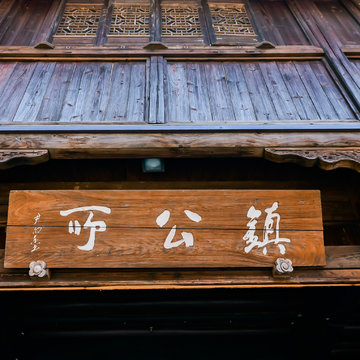 鎮公所